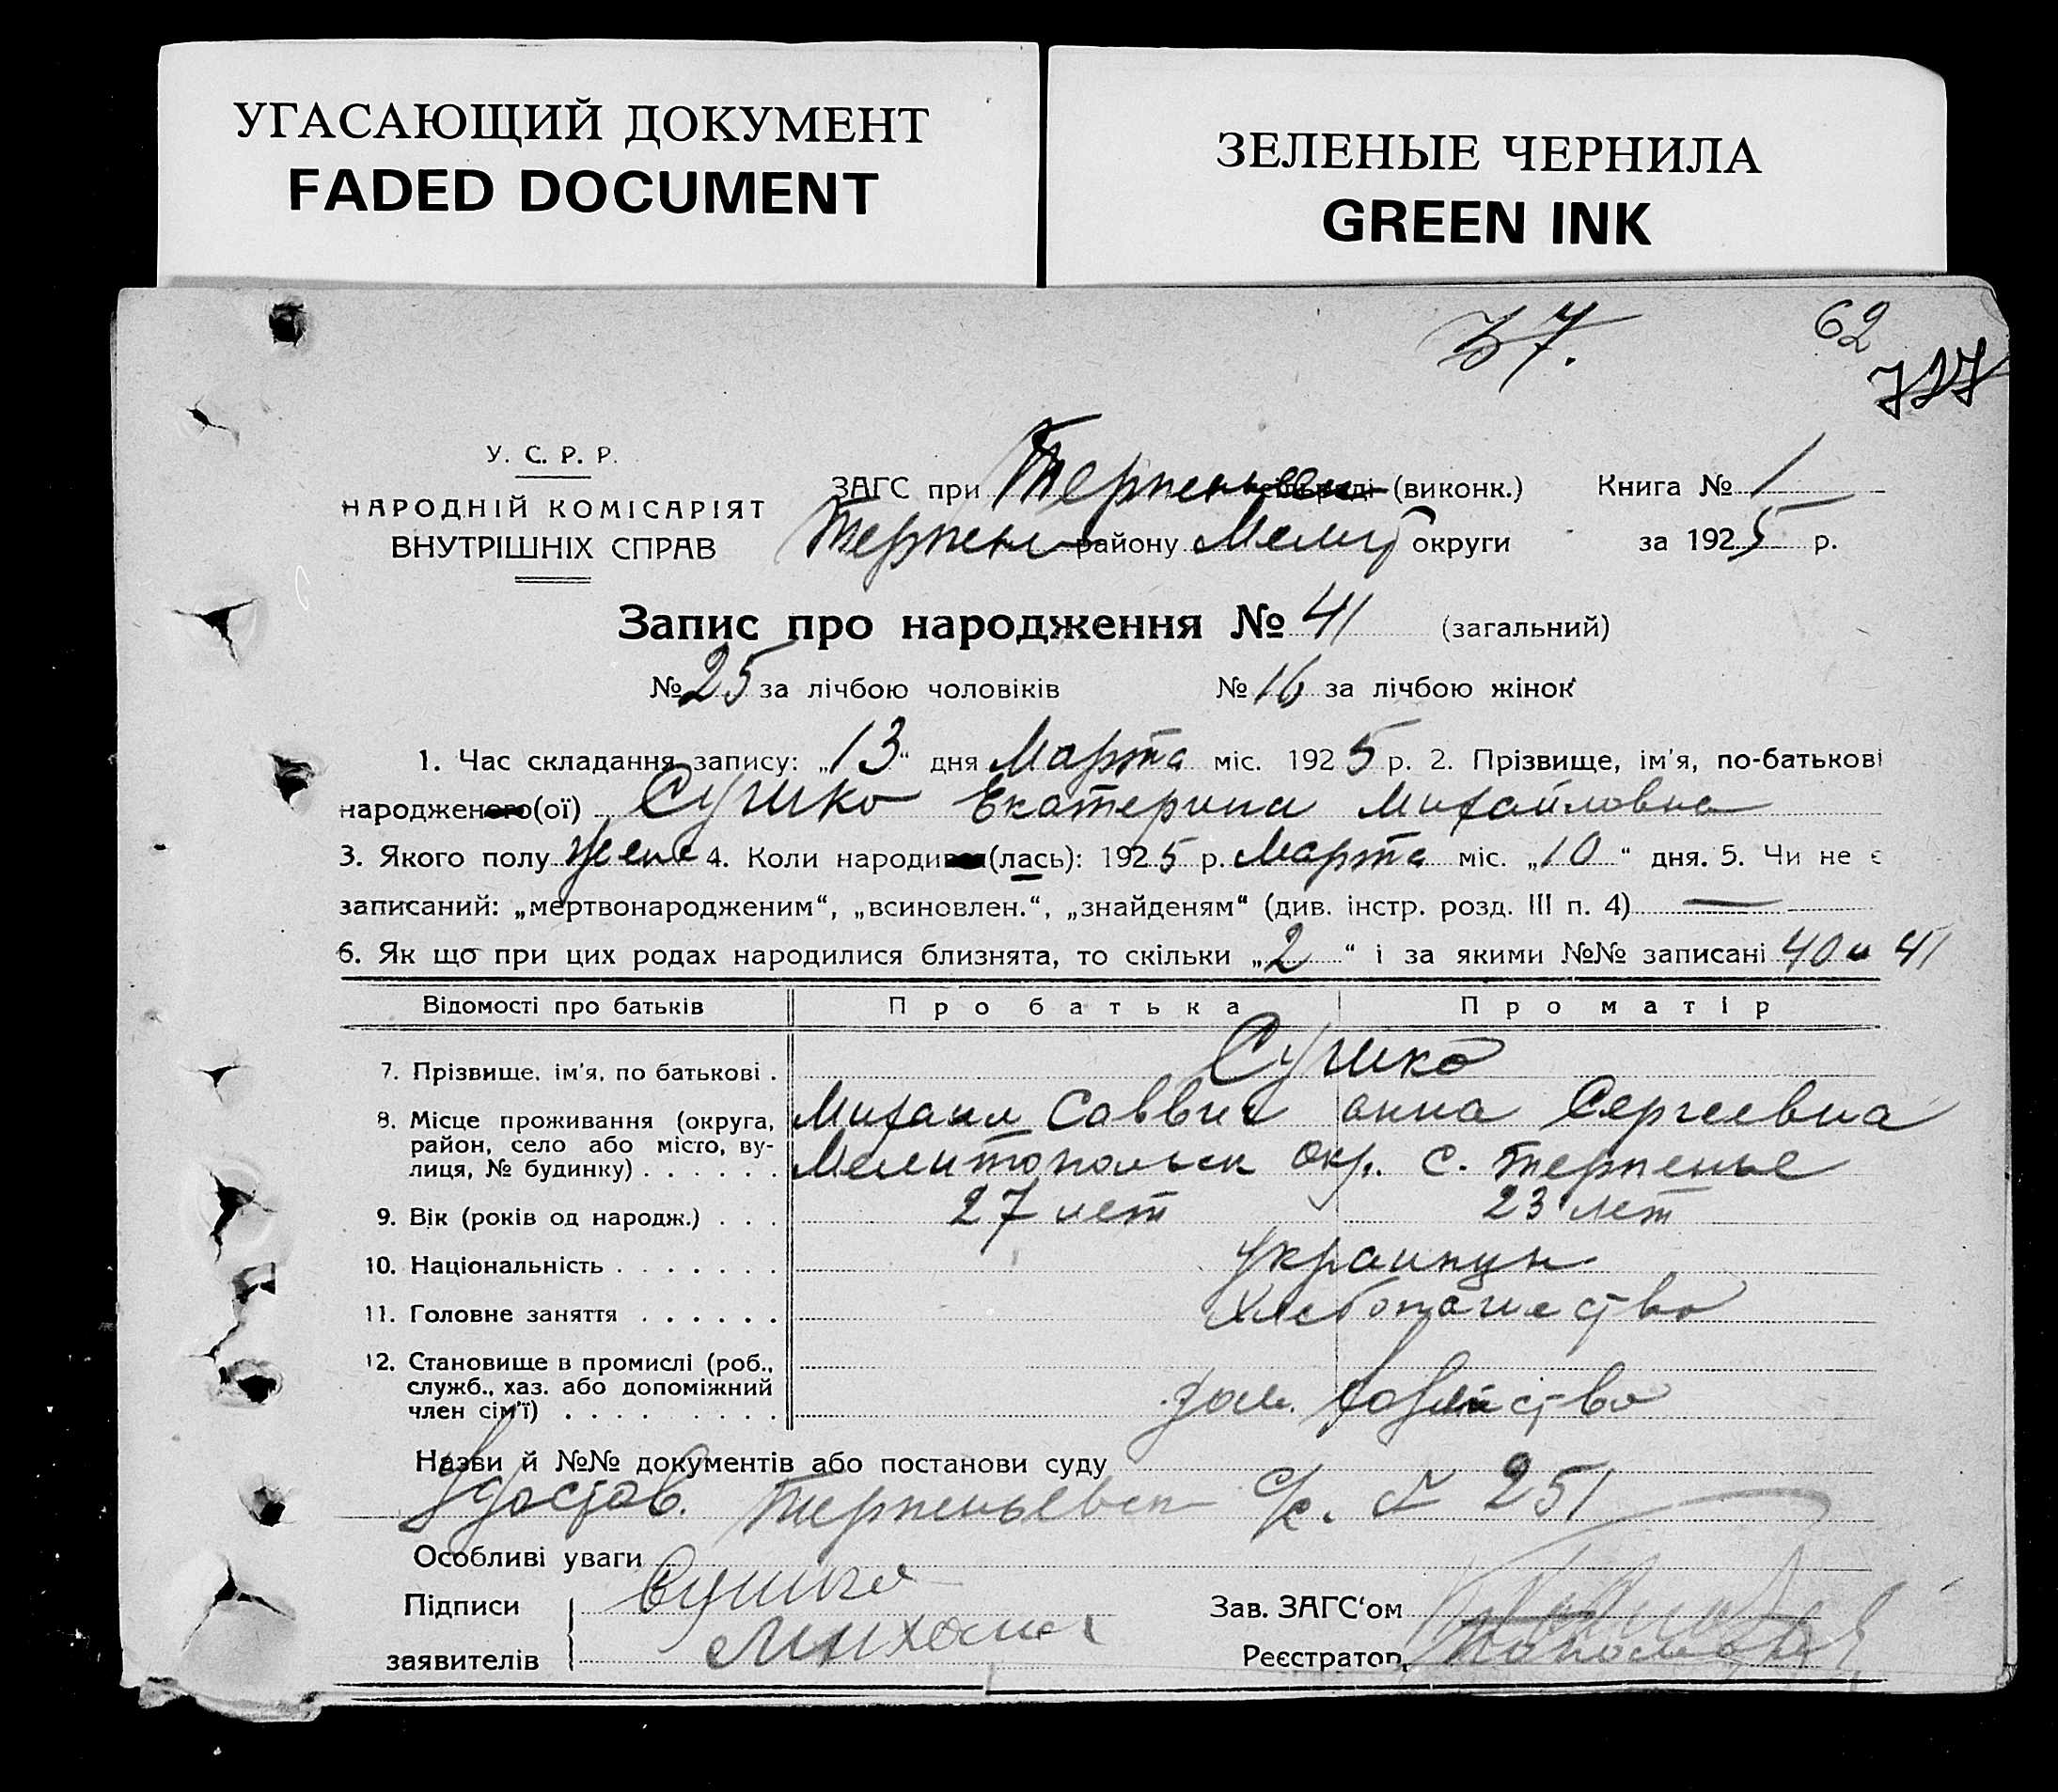 УГАСАЮЩИЙ ДОКУМЕНТ
FADED DOCUMENT
ЗЕЛЕНЫЕ ЧЕРНИЛА
GREEN INK
37.
62
У. С. Р. Р.
НАРОДНІЙ КОМІСАРІЯТ
ВНУТРІШНІХ СПРАВ
ЗАГС при Терпеньевск (виконк.) Книга № 1
Терпен району Мелит округи за 1925 р.
Запис про народження № 41 (загальний)
№ 25 за лічбою чоловіків № 16 за лічбою жінок
1. Час складання запису: „13“ дня Марта міс. 1925 р. 2. Прізвище, ім'я, по-батькові
народженого(ої) Сушко Екатерина Михайловна
3. Якого полу жен 4. Коли народився(лась): 1925 р. Марта міс. „10“ дня. 5. Чи не є
записаний: „мертвонародженим“, „всиновлен.“, „знайденям“ (див. інстр. розд. III п. 4) —
6. Як що при цих родах народилися близнята, то скільки „2“ і за якими №№ записані 40 и 41
Відомості про батьків Про батька Про матір
7. Прізвище, ім'я, по батькові . Сушко
Михаил Саввич Анна Сергеевна
8. Місце проживання (округа,
район, село або місто, ву-
лиця, № будинку) . . . . . . Мелитопольск окр. с. Терпенье
9. Вік (років од народж.) . . . 27 лет 23 лет
10. Національність . . . . . . . украинцы
11. Головне заняття . . . . . . хлебопашество
12. Становище в промислі (роб.,
служб., хаз. або допоміжний
член сім'ї) . . . . . . . . . дом. хозяйство
Назви й №№ документів або постанови суду
Удостов. Терпеньевск с/с. № 251
Особливі уваги
Підписи Сушко
заявителів Михаил
Зав. ЗАГС'ом
Реєстратор